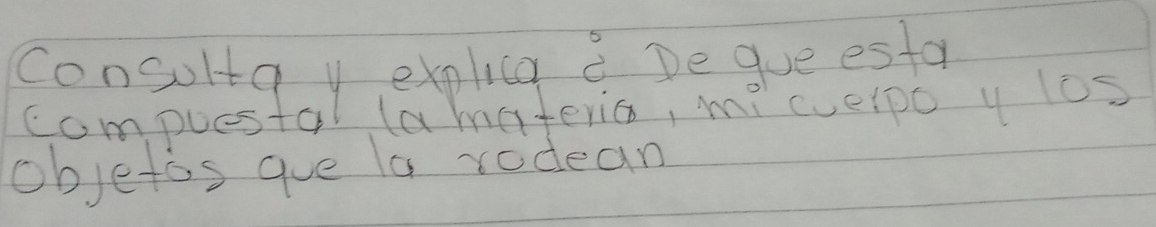 Consulta y explica ¿ De que esta
compuesta la materia, mi cuerpo y los
objetos que la rodean